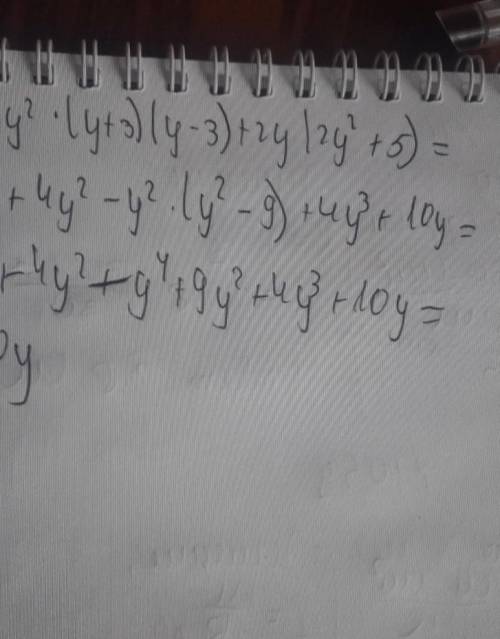 y² · (y+3)(y-3)+2y(2y²+5)=
+4y²-y²·(y²-9)+4y³+10y=
+4y²-y⁴+9y²+4y³+10y=
0y